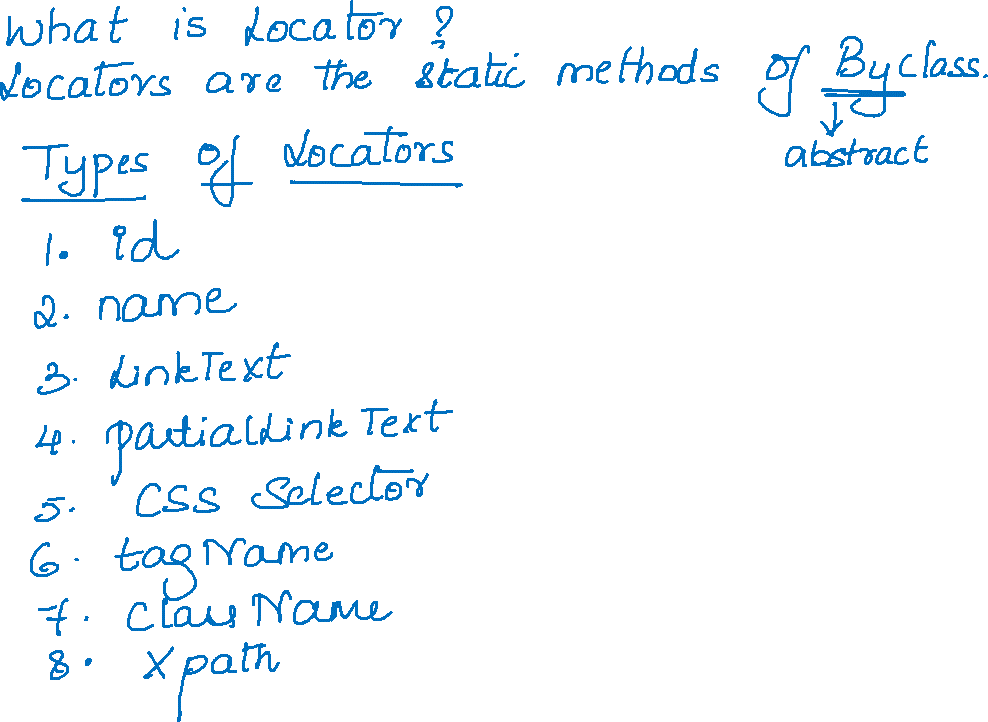 What is Locator?
Locators are the static methods of By class.
abstract
Types of Locators
1. id
2. name
3. LinkText
4. partialLinkText
5. CSS Selector
6. tagName
7. className
8. Xpath